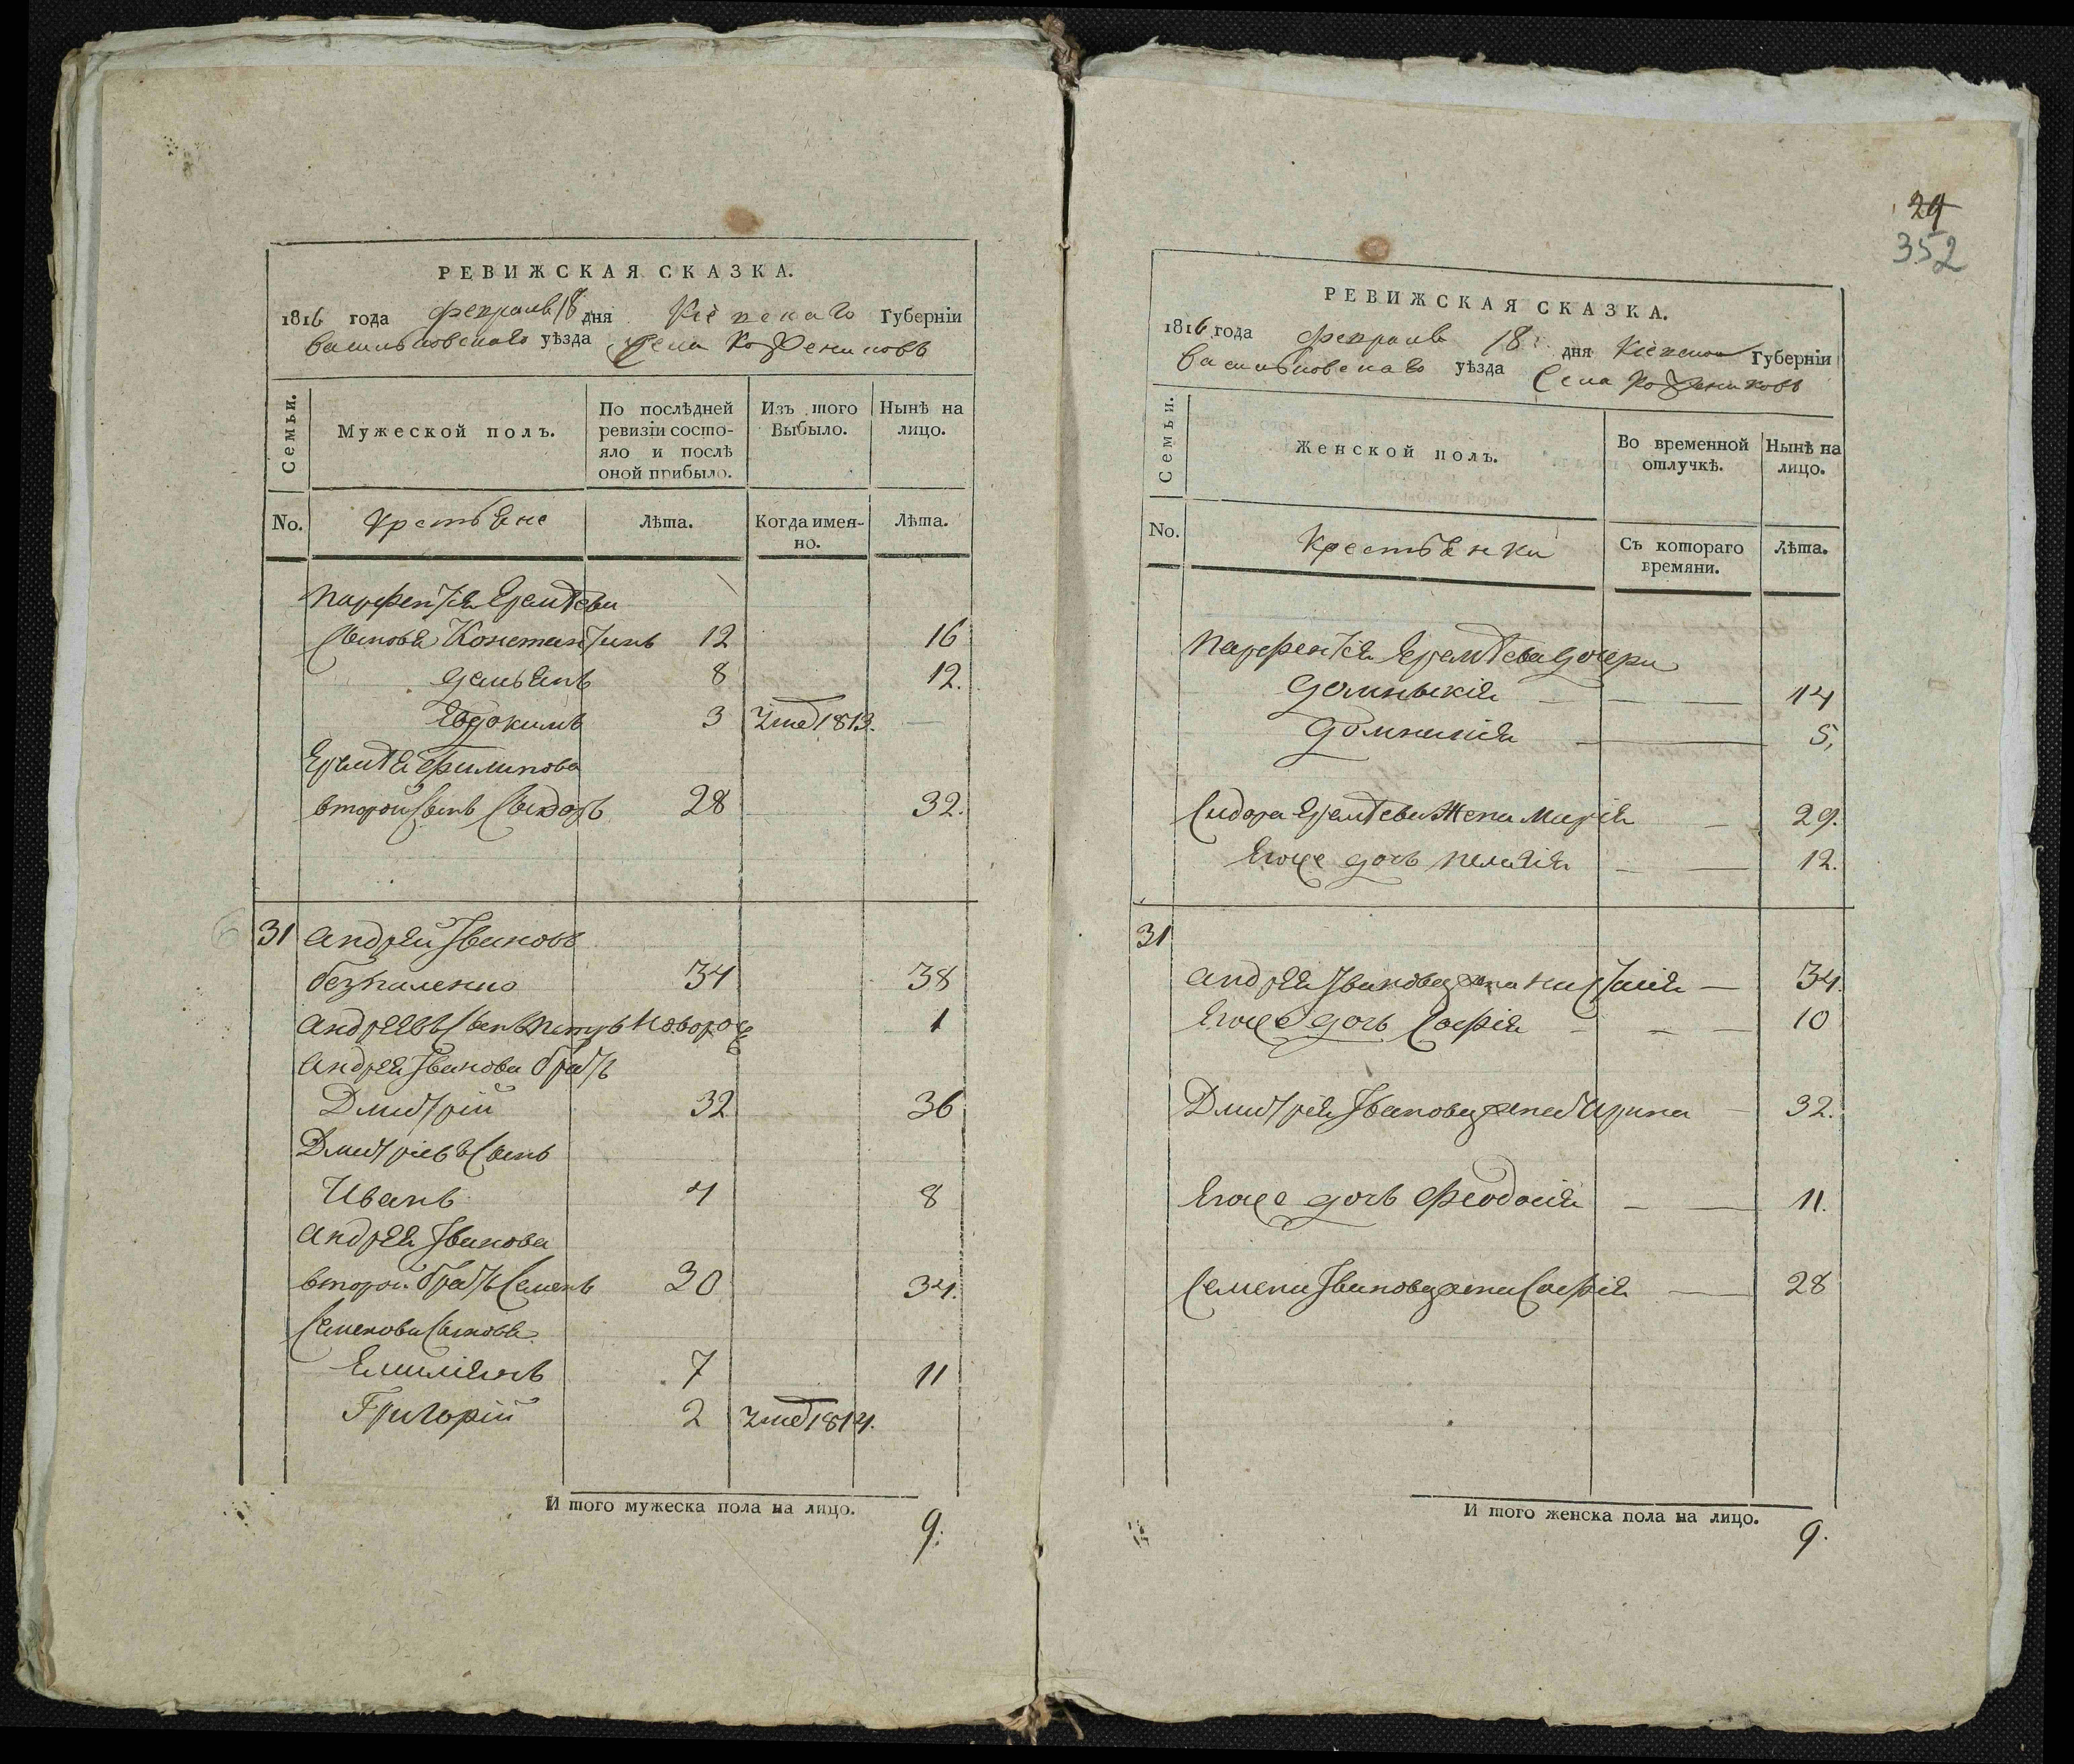 РЕВИЖСКАЯ СКАЗКА.
1816 года Февраля 18 дня Кіевскаго Губерніи
Васильковскаго уѣзда Села Кожениковъ
Семьи.
Мужеской полъ.
По послѣдней ревизіи состояло и послѣ оной прибыло.
Изъ того Выбыло.
Нынѣ на лицо.
No. Крстьяне Лѣта. Когда именно. Лѣта.
Парфентія Еремѣева
Сыновья Константинъ 12 16
Демьянъ 8 12.
Евдокимъ 3 Умер 1813.
Еремѣя Филипова
второй сынъ Сыдоръ 28 32.
31 Андрей Івановъ
безпаленко 34 38
Андреевъ сынъ Петръ новорож 1
Андрея Іванова братъ
Дмитрій 32 36
Дмитріевъ сынъ
Иванъ 4 8
Андрея Іванова
второй братъ Семенъ 30 34.
Семенова сыновья
Емиліянъ 7 11
Григорій 2 Умер 1814.
И того мужеска пола на лицо. 9.
29
352
РЕВИЖСКАЯ СКАЗКА.
1816 года Февраля 18 дня Кіевской Губерніи
Васильковскаго уѣзда Села Кожениковъ
Семьи.
Женской полъ.
Во временной отлучкѣ.
Нынѣ на лицо.
No. Крестьянки Съ котораго времяни. Лѣта.
Парфентія Еремѣева дочери
14
Домникія 5,
Сидора Еремѣева Жена Марія 29.
Егоже дочь Пелагія 12.
31
Андрея Іванова жена Настасія 34.
Егоже дочь Софія 10
Дмитрія Іванова жена Ирина 32.
Егоже дочь Феодосія 11.
Семена Іванова жена Софія 28
И того женска пола на лицо. 9.